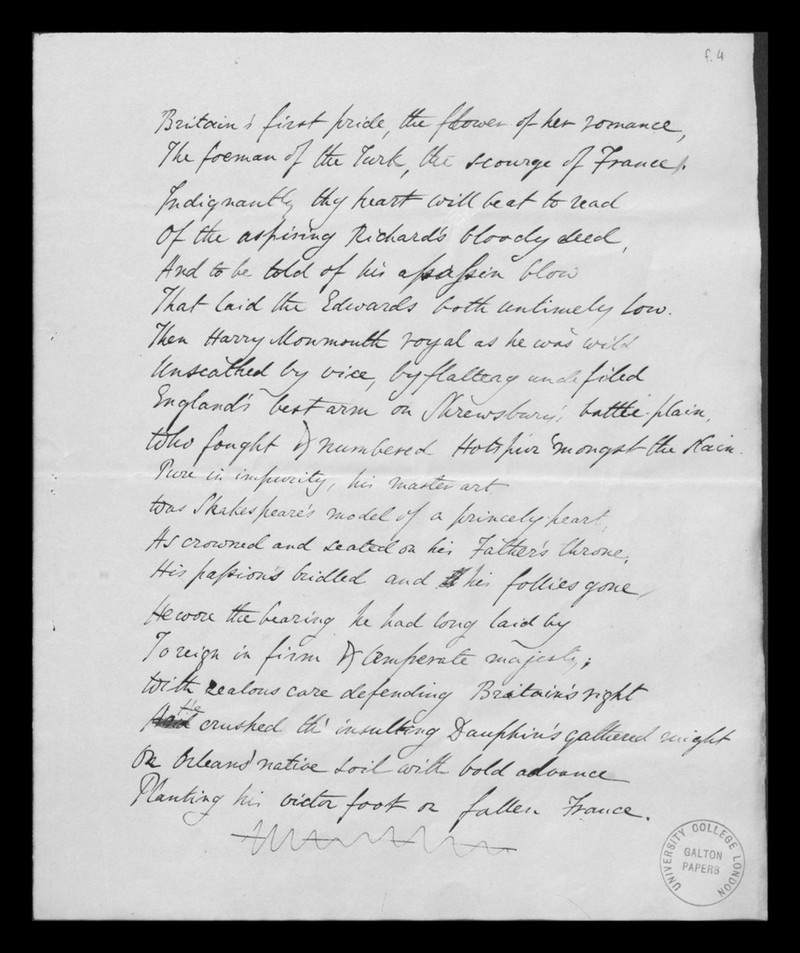 f.4
Britain's first pride, the flower of her romance,
The foeman of the Turk, the scourge of France.
Indignantly thy heart will beat to read
Of the aspiring Richard's bloody deed,
And to be told of his assassin blow
That laid the Edwards both untimely low.
Then Harry Monmouth royal as he was wild
Unscathed by vice, by flattery undefiled
England's best arm on Shrewsbury's battle-plain,
Who fought & numbered Hotspur 'mongst the slain.
Pure in impurity, his master art
Was Shakespeare's model of a princely heart,
As crowned and seated on his Father's throne,
His passions bridled and his follies gone,
He wore the bearing he had long laid by
To reign in firm & temperate majesty;
With zealous care defending Britain's right
He crushed th' insulting Dauphin's gathered might
On Orleans' native soil with bold advance
Planting his victor foot on fallen France.
UNIVERSITY COLLEGE LONDON
GALTON
PAPERS